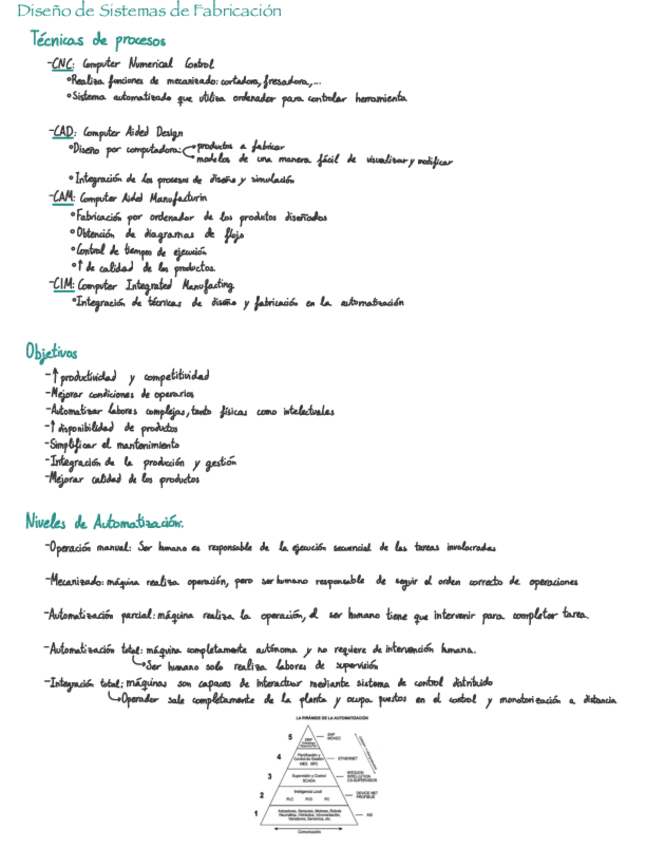 Diseño de Sistemas de Fabricación
Técnicas de procesos
-CNC: Computer Numerical Control
°Realiza funciones de mecanizado: cortadora, fresadora,...
°Sistema automatizado que utiliza ordenador para controlar herramienta
-CAD: Computer Aided Design
°Diseño por computadora: productos a fabricar
modelos de una manera fácil de visualizar y modificar
°Integración de los procesos de diseño y simulación
-CAM: Computer Aided Manufacturin
°Fabricación por ordenador de los productos diseñados
°Obtención de diagramas de flujo
°Control de tiempos de ejecución
°↑ de calidad de los productos.
-CIM: Computer Integrated Manufacting
°Integración de técnicas de diseño y fabricación en la automatización
Objetivos
-↑ productividad y competitividad
-Mejorar condiciones de operarios
-Automatizar labores complejas, tanto físicas como intelectuales
-↑ disponibilidad de productos
-Simplificar el mantenimiento
-Integración de la producción y gestión
-Mejorar calidad de los productos
Niveles de Automatización.
-Operación manual: Ser humano es responsable de la ejecución secuencial de las tareas involucradas
-Mecanizado: máquina realiza operación, pero ser humano responsable de seguir el orden correcto de operaciones
-Automatización parcial: máquina realiza la operación, el ser humano tiene que intervenir para completar tarea.
-Automatización total: máquina completamente autónoma y no requiere de intervención humana.
↳Ser humano solo realiza labores de supervisión
-Integración total: máquinas son capaces de interactuar mediante sistema de control distribuido
↳Operador sale completamente de la planta y ocupa puestos en el control y monotorización a distancia
LA PIRÁMIDE DE LA AUTOMATIZACIÓN
5 ERP SAP
4 Planificación y
Control de Gestión ETHERNET
MES SPC
3 Supervisión y Control
SCADA
2 Inteligencia Local DEVICE NET
PLC PC PROFIBUS
1 Actuadores, Sensores, Motores, Robots ASI
Comunicación